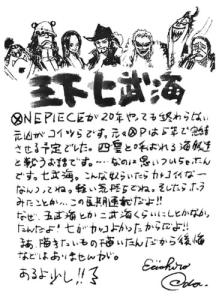 王下七武海
ONEPIECEが20年やっても終わらない
元凶がコイツらです。元々OPは5年で完結
させる予定でした。四皇と呼ばれる海賊達
と戦うお話です。…なのに思いついちゃったん
です。七武海。こんな奴らいたらカッコイイなー
なんつってね。軽い気持ちでね。そしたらホラ
みたことか…この長期連載だよ!!
なぜ、五武海とか三武海くらいにしとかなかっ
たんだよ!七がカッコよかったからだよ!!
描きたいもの描いたんだから後悔
などはありませんが。
あるよ少し!!
Eiichiro
Oda